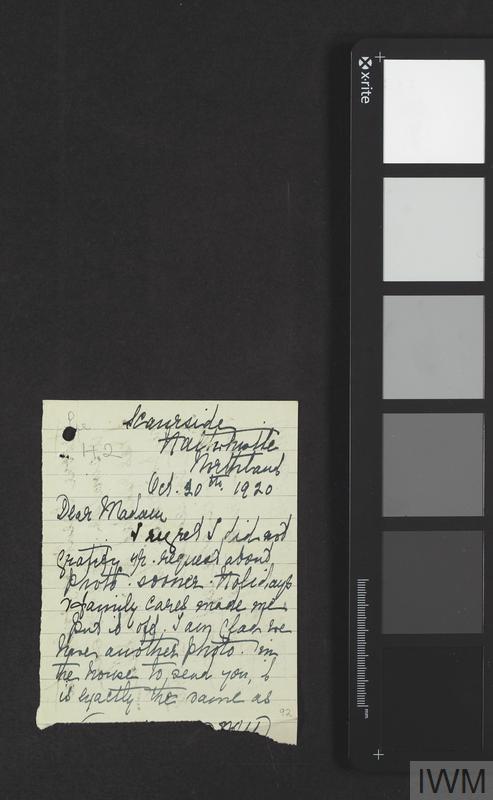 Scaurside
Haltwhistle
Northland
Oct. 20th 1920
Dear Madam
I regret I did not
gratify yr. request about
photo sooner. Holidays
& family cares made me
put it off. I am glad we
have another photo. in
the house to send you, &
is exactly the same as
42
92
x·rite
mm
IWM